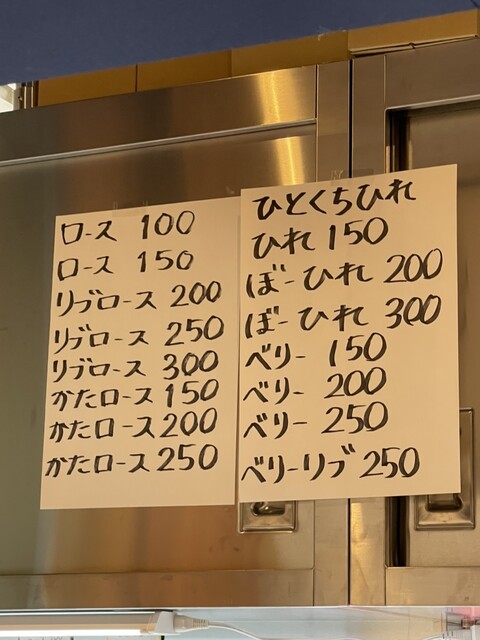 ロース 100
ロース 150
リブロース 200
リブロース 250
リブロース 300
かたロース 150
かたロース 200
かたロース 250
ひとくちひれ
ひれ 150
ぼーひれ 200
ぼーひれ 300
べリー 150
べリー 200
べリー 250
べリーリブ 250